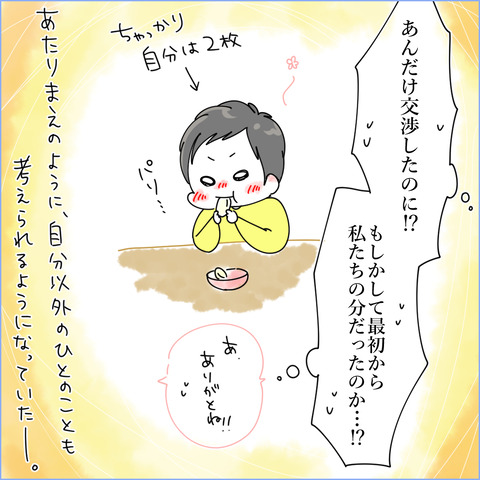 あんだけ交渉したのに!?
もしかして最初から
私たちの分だったのか…!?
ちゃっかり
自分は2枚
パリ…
あ、
ありがとね!!
あたりまえのように、自分以外のひとのことも
考えられるようになっていたー。